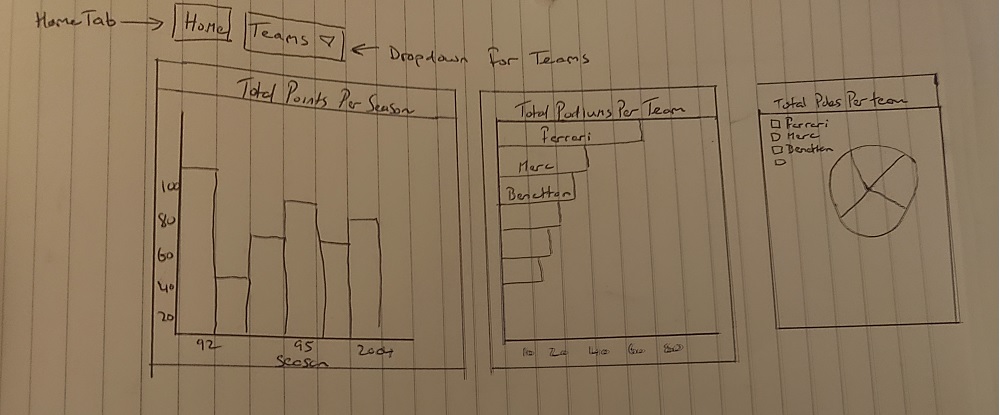 Home Tab
Home
Teams
Dropdown for Teams
Total Points Per Season
100
80
60
40
20
92
95
2004
Season
Total Podiums Per Team
Ferrari
Merc
Benetton
10 20 40 60 80
Total Poles Per team
Ferrari
Merc
Benetton